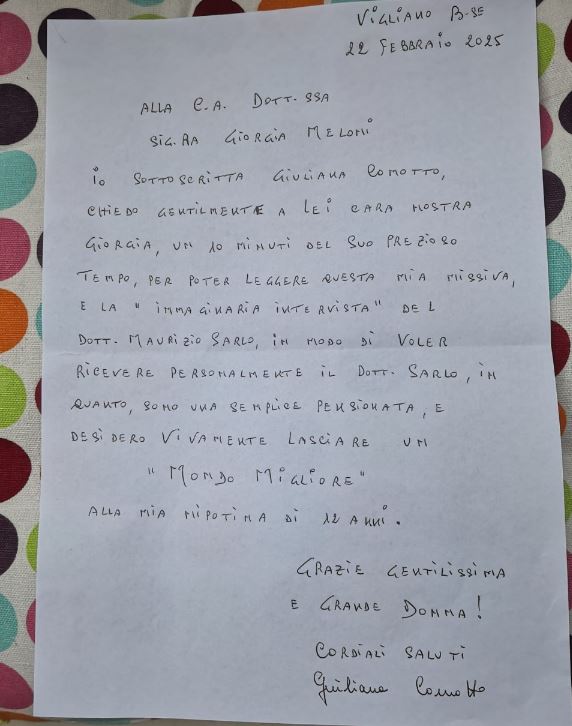 VIGLIANO B.SE
22 FEBBRAIO 2025
ALLA C.A. DOTT.SSA
SIG.RA GIORGIA MELONI
IO SOTTOSCRITTA GIULIANA COMOTTO,
CHIEDO GENTILMENTE A LEI CARA NOSTRA
GIORGIA, UN 10 MINUTI DEL SUO PREZIOSO
TEMPO, PER POTER LEGGERE QUESTA MIA MISSIVA,
E LA "IMMAGINARIA INTERVISTA" DEL
DOTT. MAURIZIO SARLO, IN MODO DI VOLER
RICEVERE PERSONALMENTE IL DOTT. SARLO, IN
QUANTO, SONO UNA SEMPLICE PENSIONATA, E
DESIDERO VIVAMENTE LASCIARE UN
"MONDO MIGLIORE"
ALLA MIA NIPOTINA DI 12 ANNI.
GRAZIE GENTILISSIMA
E GRANDE DONNA!
CORDIALI SALUTI
Giuliana Comotto